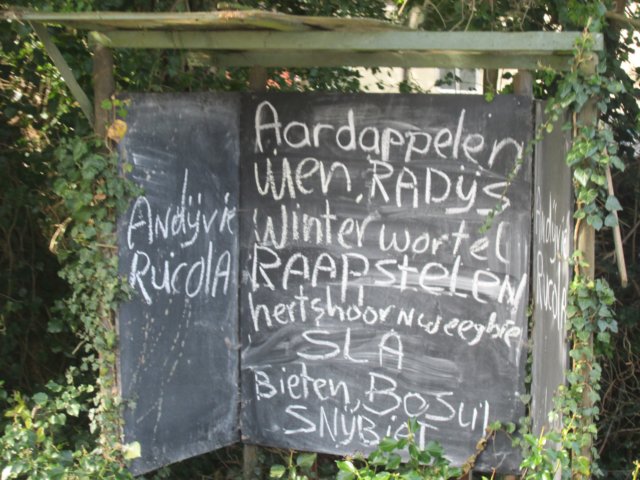 Andijvie
RucolA
Aardappelen
uien, RADijs
Winterwortel
RAAPstelen
hertshoornweegbrie
SLA
Bieten, Bosui,
SNijBiet
Andijvie
RucolA